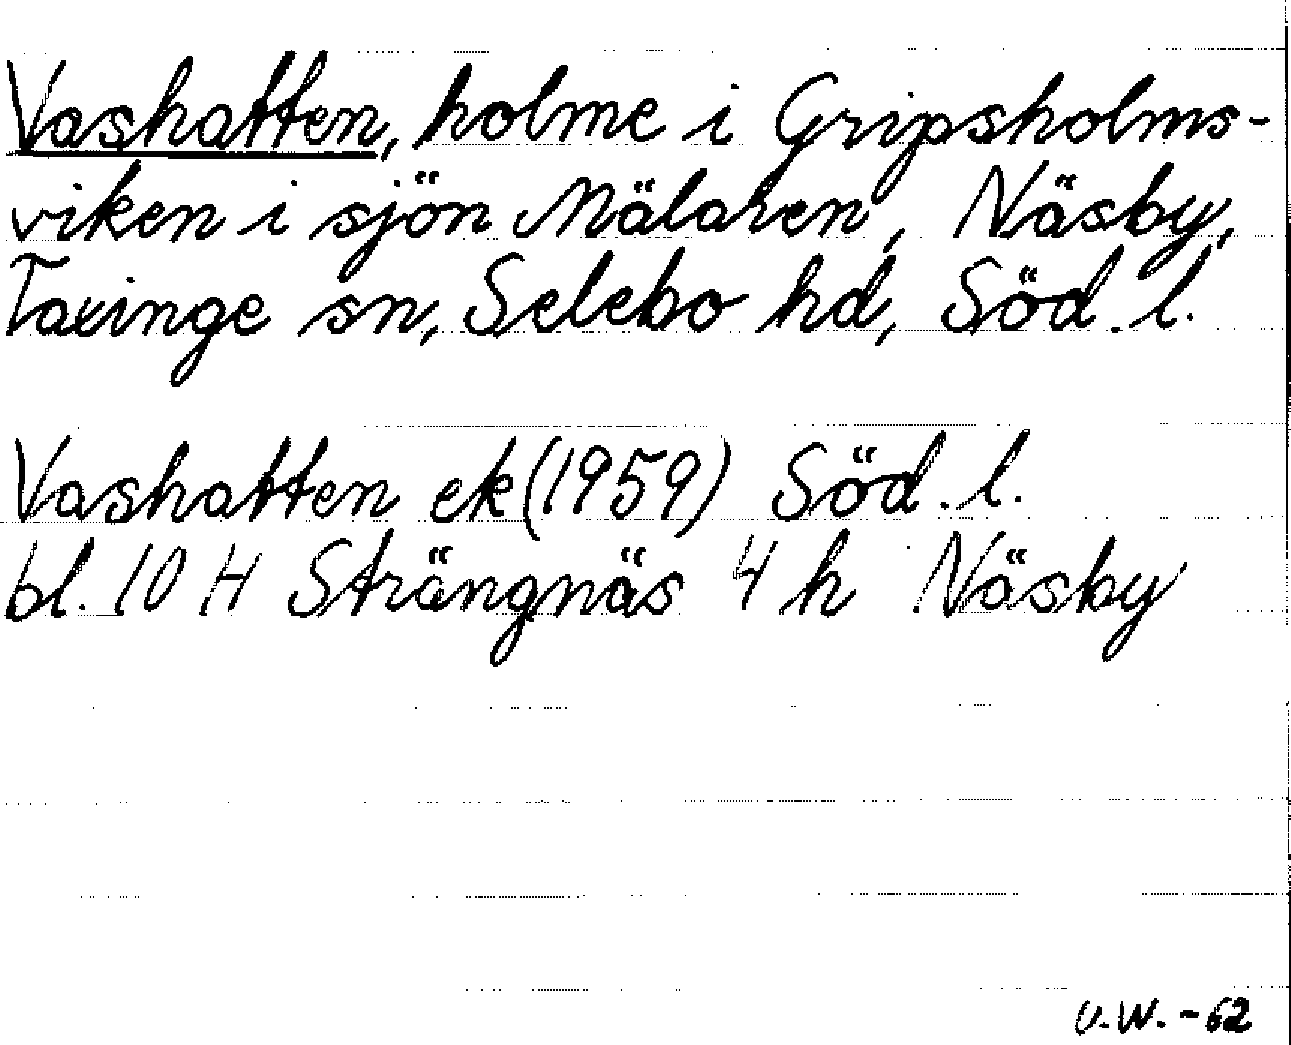 Vashatten, holme i Gripsholms-
viken i sjön Mälaren, Näsby,
Taxinge sn, Selebo hd, Söd. l.
Vashatten ek (1959) Söd. l.
bl. 10 H Strängnäs 4 h Näsby
U.W. - 62